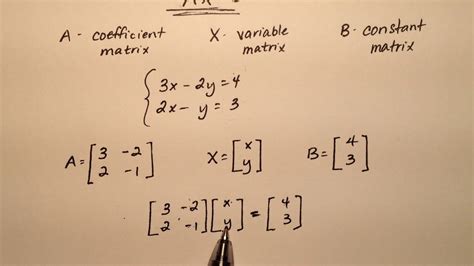 A - coefficient matrix X - variable matrix B - constant matrix
3x - 2y = 4
2x - y = 3
A = [3 -2; 2 -1] X = [x; y] B = [4; 3]
[3 -2; 2 -1] [x; y] = [4; 3]